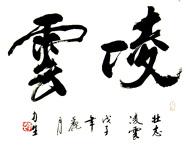 凌雲
壯志
凌雲
戊子
年
麗
月